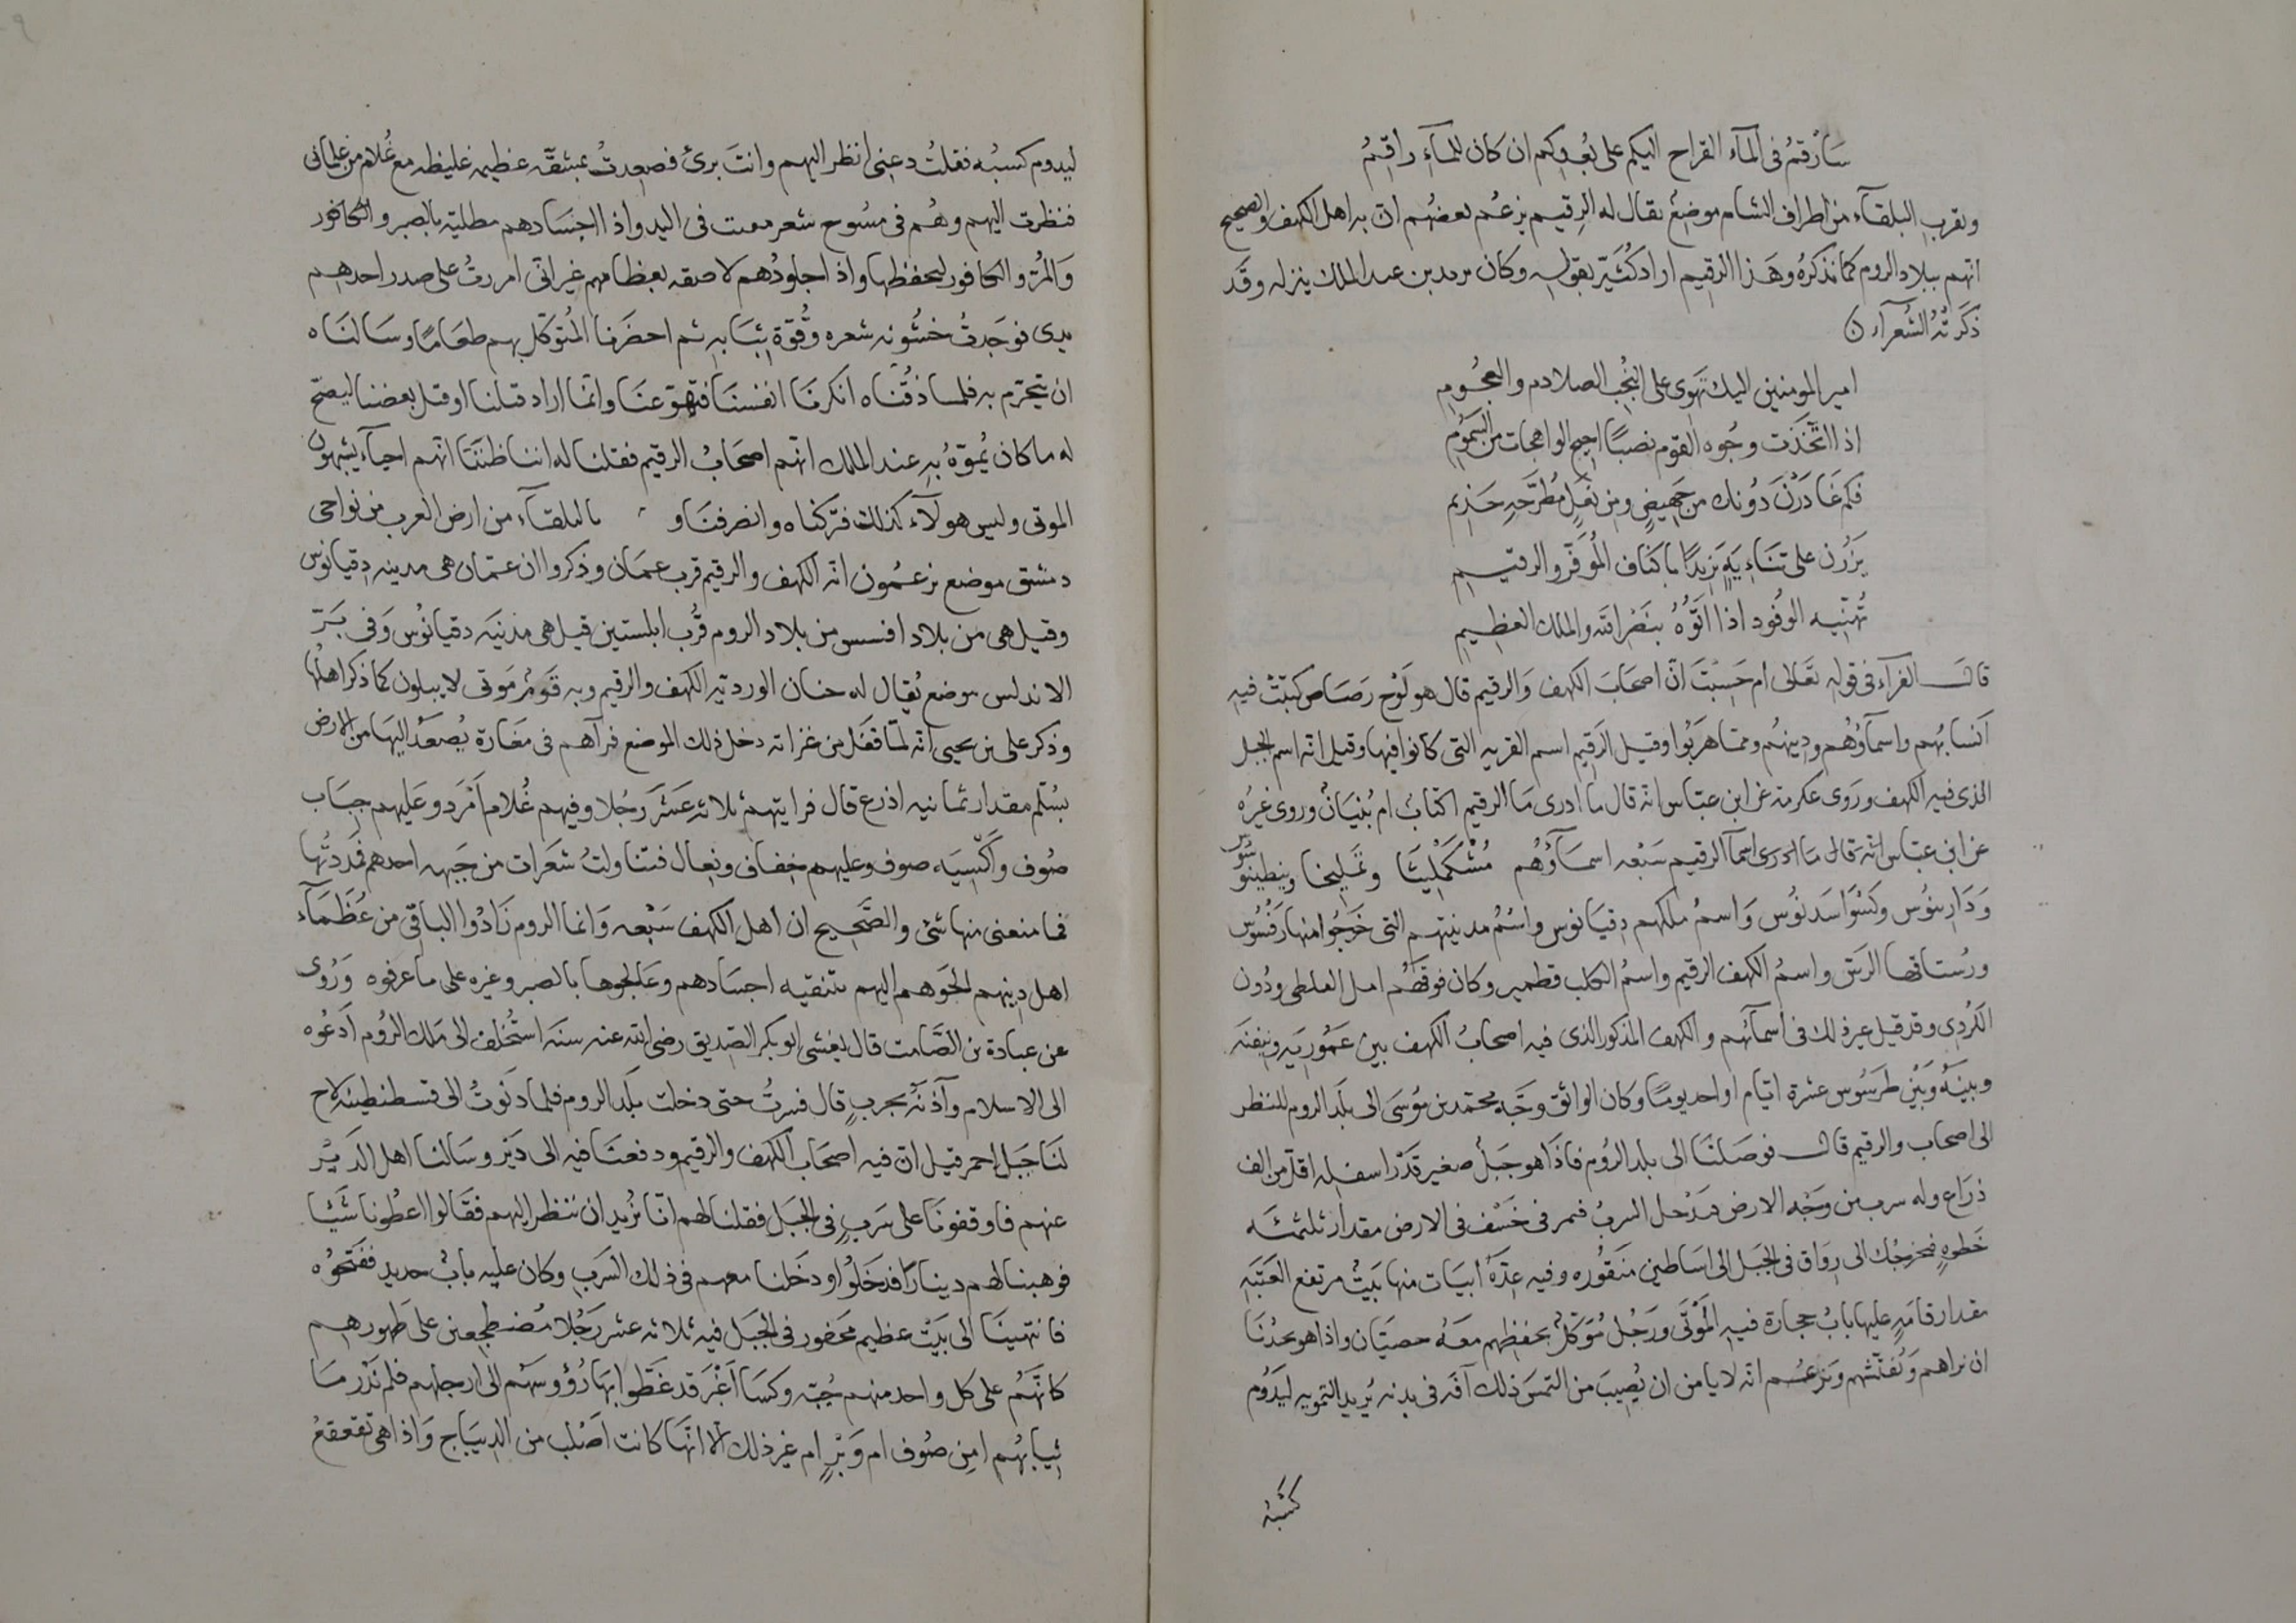 سأرقم في المآء القراح اليكم على بعدكم ان كان للمآء راقم
وبقرب البلقآء من اطراف الشام موضع يقال له الرقيم يزعم بعضهم ان به اهل الكهف والصحيح
انهم ببلاد الروم كما نذكره وهذا الرقيم اراد كثير بقوله وكان يزيد بن عبد الملك ينزله وقد
ذكرته الشعرآء
امير المومنين اليك تهوى على البخت الصلادم والعجوم
اذا اتخذت وجوه القوم نصبا اجيج الواهجات من السموم
فكم غادرن دونك من جهيض ومن نعل مطرحه جذيم
يزرن على تنايه يزيدا باكناف الموقر والرقيم
تهنيه الوفود اذا اتوه بنصر الله والملك العظيم
قال الفرآء في قوله تعالى ام حسبت ان اصحاب الكهف والرقيم قال هو لوح رصاص كتبت فيه
انسابهم واسمآوهم ودينهم ومما هربوا وقيل الرقيم اسم القريه التي كانوا فيها وقيل انه اسم الجبل
الذي فيه الكهف وروى عكرمة عن ابن عباس انه قال ما ادرى ما الرقيم اكتاب ام بنيان وروى غيره
عن ابن عباس انه قال ما ادرى اسمآ الرقيم سبعه اسمآوهم مشكملينا وتمليخا
واسم ملكهم دقيانوس واسم مدينتهم التي خرجوا منها رفسوس
ورستاقها الرس واسم الكهف الرقيم واسم الكلب قطمير وكان فوقهم القلطى ودون
الكردى وقد قيل غير ذلك في اسمآئهم والكهف المذكور الذي فيه اصحاب الكهف بين عموريه ونيقيه
وبينه وبين طرسوس عشرة ايام او احد يوما وكان الواثق وجه محمد بن موسى الى بلد الروم للنظر
الى اصحاب والرقيم قال فوصلنا الى بلد الروم فاذا هو جبل صغير قدر اسفله اقل من الف
ذراع وله سرب من وجه الارض فتدخل السرب فمر في خسف في الارض مقدار ثلثمئه
خطوه فيخرجك الى رواق في الجبل الى اساطين منقوره وفيه عدة ابيات منها بيت مرتفع العتبه
مقدار قامه عليها باب حجارة فيه الموتى ورجل موكل بحفظهم معه خصيان واذا هو يحدنا
ان نراهم ونفتشهم ويزعم انه لا يامن ان يصيب من التمس ذلك آفه في بدنه يريد التمويه ليدوم
كسبه
ليدوم كسبه فقلت دعني انظر اليهم وانت برئ فصعدت بمشقه عظيمه غليظه مع غلام من غلماني
فنظرت اليهم وهم في مسوح شعر في اليد واذا اجسادهم مطليه بالصبر والكافور
والمر والكافور ليحفظها واذا جلودهم لاصقه بعظامهم غير اني امررت على صدر احدهم
يدى فوجدت خشونه شعره وقوة ثيابه ثم احضرنا المتوكل بهم طعاما وسالناه
ان يتحرم به فلما ذقناه انكرنا انفسنا فتهوعنا وانما اراد قتلنا او قتل بعضنا ليصح
له ما كان يموه به عند الملك انهم اصحاب الرقيم فقلنا له اننا ظننا انهم احيآء يشبهون
الموتى وليس هولآء كذلك فتركناه وانصرفنا و بالبلقآء من ارض العرب من نواحي
دمشق موضع يزعمون انه الكهف والرقيم قرب عمان وذكروا ان عمان هى مدينه دقيانوس
وقيل هى من بلاد افسس من بلاد الروم قرب ابلستين قيل هى مدينه دقيانوس وفي بر
الاندلس موضع يقال له جنان الورد به الكهف والرقيم وبه قوم موتى لا يبلون كما ذكر اهلها
وذكر على بن يحيى انه لما قفل من غزاته دخل ذلك الموضع فرآهم في مغارة يصعد اليها من الارض
بسلم مقدار ثمانيه اذرع قال فرايتهم ثلاثه عشر رجلا وفيهم غلام امرد وعليهم جباب
صوف واكسيه صوف وعليهم خفاف ونعال فتناولت شعرات من جبهه احدهم فمددتها
فما منعنى منها شئ والصحيح ان اهل الكهف سبعه وانما الروم زادوا الباقي من عظمآء
اهل دينهم الحوهم اليهم بتنقيه اجسادهم وعالجوها بالصبر وغيره على ما عرفوه وروى
عن عبادة بن الصامت قال بعثنى ابو بكر الصديق رضى الله عنه سنه استخلف الى ملك الروم ادعوه
الى الاسلام وآذنه بحرب قال فسرت حتى دخلت بلد الروم فلما دنوت الى قسطنطينه لاح
لنا جبل احمر قيل ان فيه اصحاب الكهف والرقيم ودفعنا فيه الى دير وسالنا اهل الدير
عنهم فاوقفونا على سرب في الجبل فقلنا لهم انا نريد ان ننظر اليهم فقالوا اعطونا شيا
فوهبنا لهم دينارا فدخلوا ودخلنا معهم في ذلك السرب وكان عليه باب حديد ففتحوه
فانتهينا الى بيت عظيم محفور في الجبل فيه ثلاثه عشر رجلا مضطجعين على ظهورهم
كانهم على كل واحد منهم جبه وكسا اغبر قد غطوا بها رؤوسهم الى ارجلهم فلم ندر ما
ثيابهم امن صوف ام وبر ام غير ذلك الا انها كانت اصلب من الديباج واذا هى تقعقع